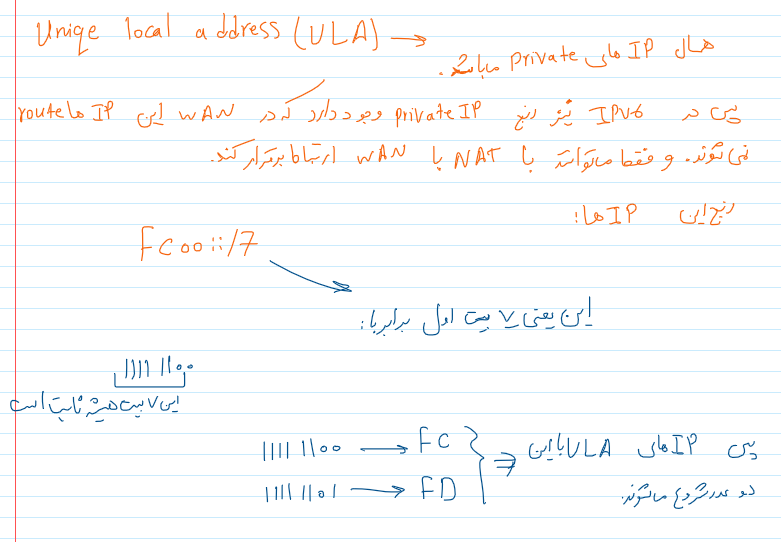 Uniqe local address (ULA) → همان IP های private میباشد.
پس در IPv6 نیز رنج private IP وجود دارد که در WAN این IP ها route
نمی شوند. و فقط میتوانند با NAT با WAN ارتباط برقرار کند.
رنج این IP ها:
FC00::/7
این یعنی ۷ بیت اول برابر با:
11111100
این ۷ بیت همیشه ثابت است
پس IP های ULA با این
11111100 → FC
11111101 → FD
دو عدد شروع میشوند.